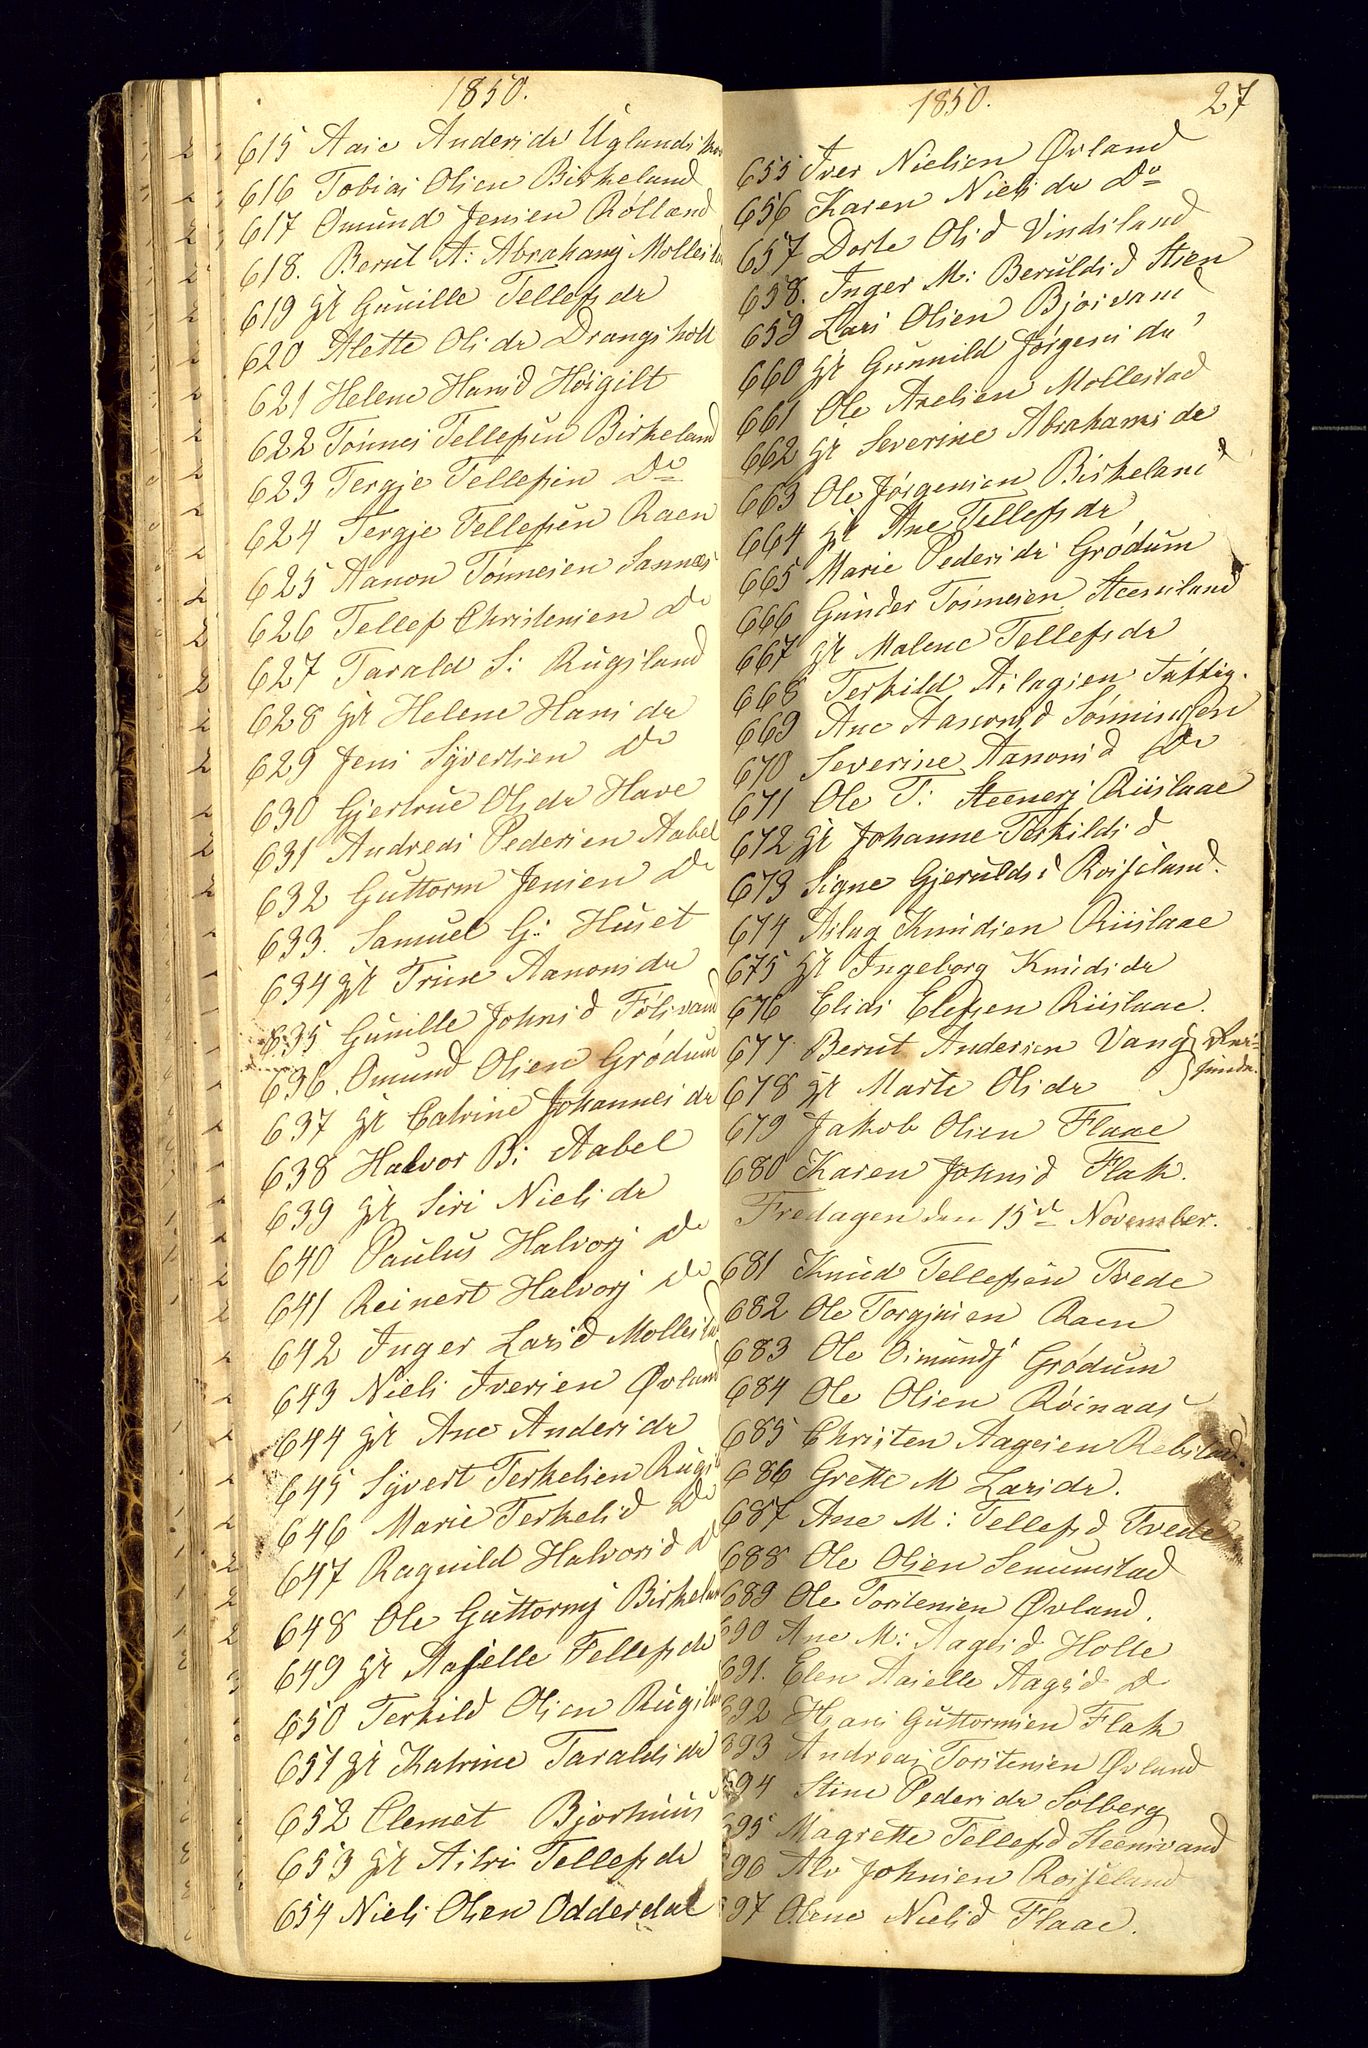 1850.
615 Aase Andersdr Uglands
616 Tobias Olsen Birkeland
617 Omund Jensen Rølland
618. Bernt A: Abrahamsj Mollestad
619 gk Gunille Tellefsdr
620 Alette Olsdr Drangsholt
621 Helene Hansd Høigilt
622 Tønnes Tellefsen Birkeland
623 Tergje Tellefsen Do
624 Tergje Tellefsen Raen
625 Aanon Tønnesen Sannæs
626 Tellef Christensen Do
627 Tarald S: Rugsland
628 gk Helene Hansdr
629 Jens Syvertsen Do
630 Gjertrue Olsdr Have
631 Andreas Pedersen Aabel
632 Guttorm Jensen Do
633. Samuel G: Huset
634 gk Trine Aanonsdr
635 Gunille Johnsd Følsvand
636. Omund Olsen Grødum
637 gk Catrine Johannesdr
638 Halvor B: Aabel
639 gk Siri Nielsdr
640 Paulus Halvorsj Do
641 Reinert Halvorsj Do
642 Inger Larsd Mollestad
643 Niels Iversen Øvland
644 gk Ane Andersdr
645 Syvert Terkelsen Rugsl
646 Marie Terkelsd Do
647 Ragnild Halvorsd D
648 Ole Guttormsj Birkelan
649 gk Aaselle Tellefsdr
650 Terkild Olsen Rugslan
651 gk Katrine Taraldsdr
652 Clemet Bjorhuus
653 gk Silvi Tellefsdr
654 Niels Olsen Odderdal
1850. 27
655 Iver Nielsen Øvland
656 Karen Nielsdr Do
657 Dorte Olsd Vindsland
658. Inger M: Beruldsd Steen
659 Lars Olsen Bjorvand
660 gk Gunnild Jørgensdr
661 Ole Axelsen Mollestad
662 gk Severine Abrahamsdr
663 Ole Jørgensen Birkeland
664 gk Ane Tellefsdr
665 Marie Pedersdr Grødum
666 Gunder Tønnesen Steensland
667 gk Malene Tellefsdr
668 Terkild Aslagsen fattig.
669 Ane Aasmd Sønningsen
670 Severine Aanonsd Do
671 Ole T: Steenersj Riislaae
672 gk Johanne Terkildsd
673 Signe Gjeruldsd Roisseland.
674 Aslag Knudsen Riislaae
675 gk Ingeborg Knudsdr
676 Elias Elefsen Riislaae.
677 Bernt Andersen Vang
678 gk Marte Olsdr
679 Jakob Olsen Flaae
680 Karen Johnsd Flak.
Fredagen den 15de November.
681 Knud Tellefsen Trede
682 Ole Torgjusen Raen
683 Ole Osmundsj Grødum
684 Ole Olsen Røinaas
685 Christen Aagesen Rebsland.
686 Grette M Larsdr.
687 Ane M: Tellefsd Trede
688 Ole Olsen Senumstad
689 Ole Torstensen Øvland.
690 Ane M: Aagesd Holte
691. Elen Aaselle Aagsd D
692 Hans Guttormsen Flak
693 Andreas Torstensen Øvland
694 Stine Pedersdr Solberg
695 Magrette Tellefsd Steensvand
696 Alv Johnsen Roisseland
697 Olene Nielsd Flaae.